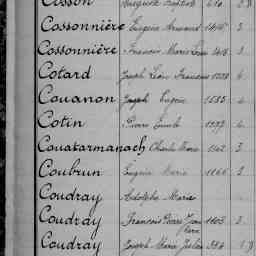 Cosson Auguste
Cossonnière Eugène Armand 1415 3
Cossonnière Francis Marie Léon 1418 3
Cotard Joseph Léon Francois 1220 4
Couanon Joseph Eugène 1585 4
Cotin Pierre Emile 1777 4
Couatarmanach Charles Marie 1142 3
Coubrun Eugène Marie 1166 3
Coudray Adolphe Marie
Coudray Francois Pierre Jean Marie 1103 3
Coudray Joseph Marie Julien 584